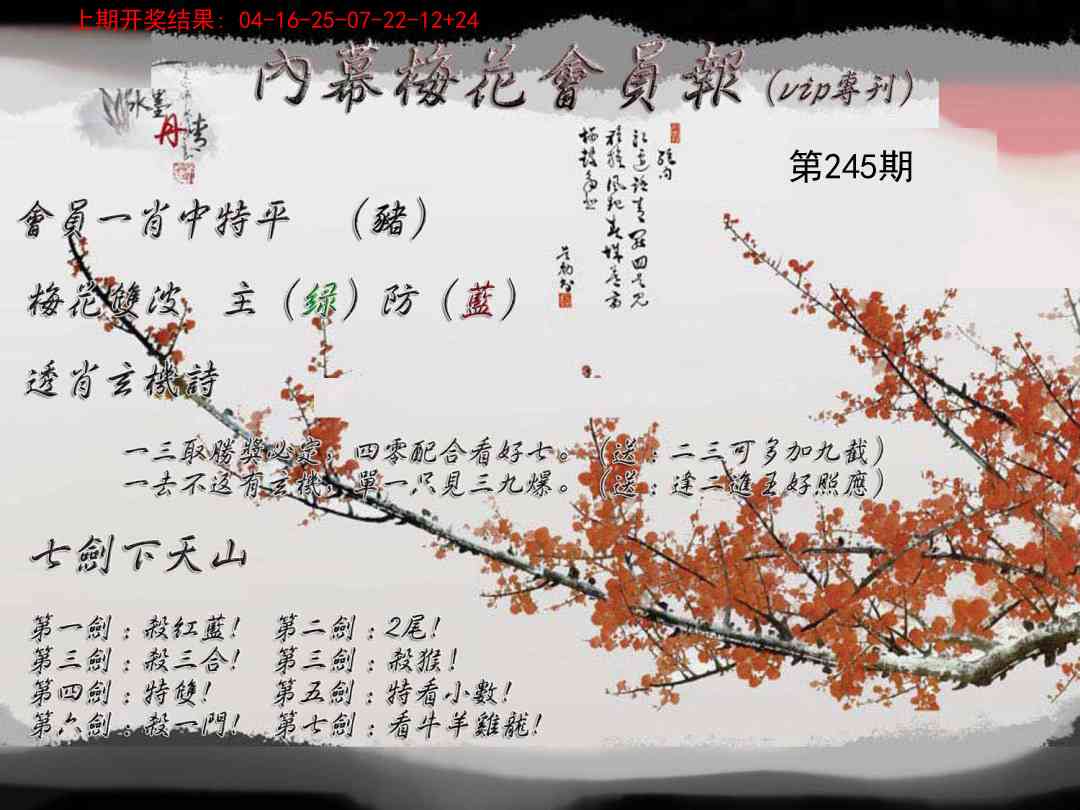 上期开奖结果: 04-16-25-07-22-12+24
內幕梅花會員報(vip專刊)
水墨
丹青
第245期
會員一肖中特平 (豬)
梅花雙波 主(绿)防(藍)
透肖玄機詩
一三取勝獎必定，四零配合看好七。(送:二三可多加九截)
一去不返有玄機，單一只見三九爆。(送:逢二進王好照應)
七劍下天山
第一劍:殺紅藍! 第二劍:2尾!
第三劍:殺三合! 第三劍:殺猴!
第四劍:特雙! 第五劍:特看小數!
第六劍:殺一門! 第七劍:看牛羊雞龍!